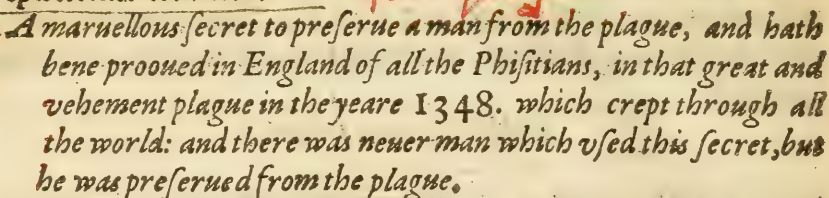 A maruellous ſecret to preſerue a man from the plague, and hath
bene prooued in England of all the Phiſitians, in that great and
vehement plague in the yeare 1348. which crept through all
the world: and there was neuer man which vſed this ſecret, but
he was preſerued from the plague.